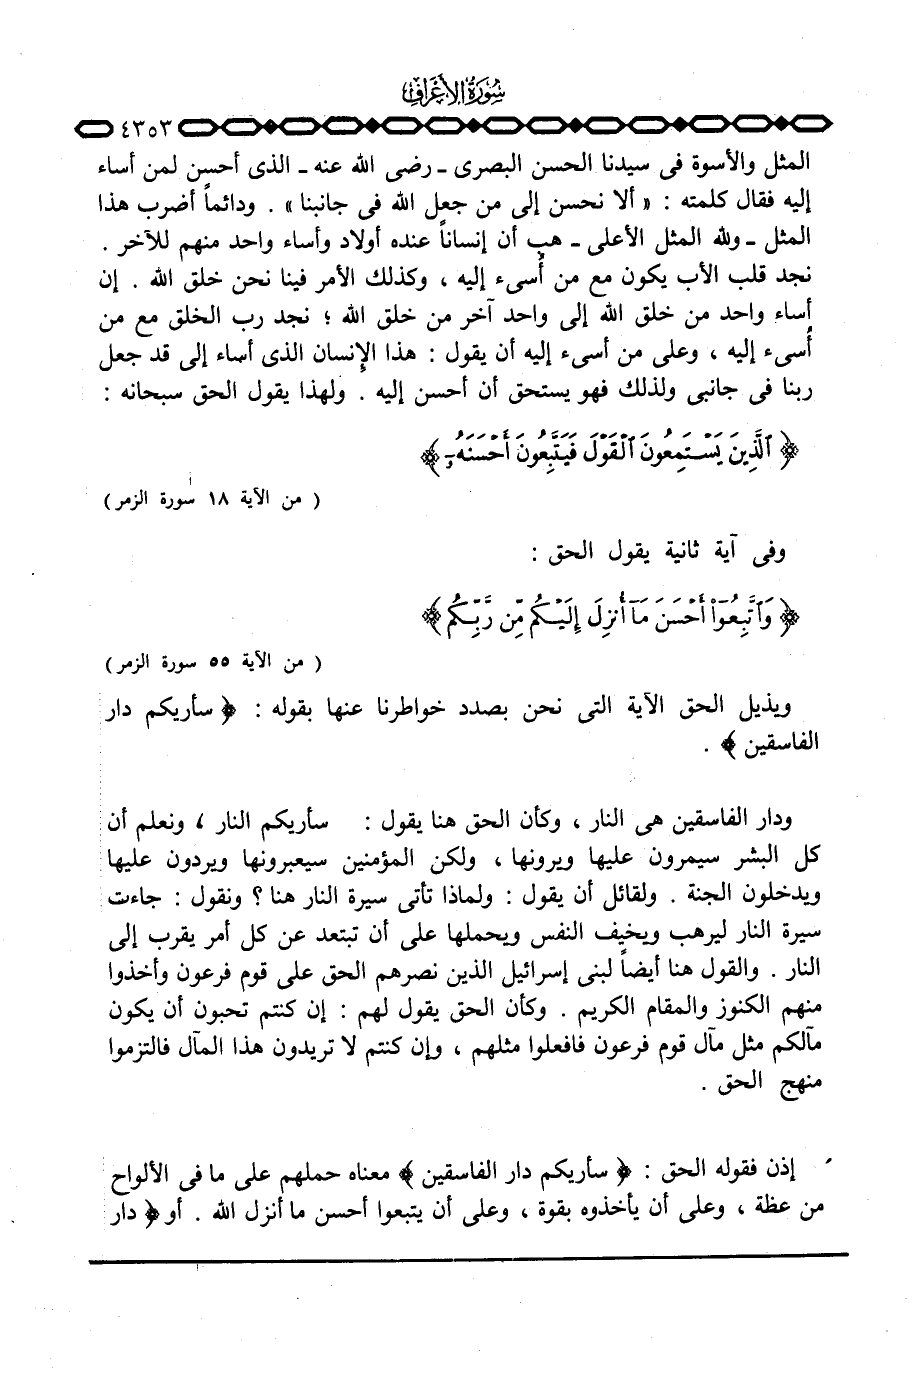 سُورَةُ الأَعْرَافِ
٤٣٥٣
المثل والأسوة فى سيدنا الحسن البصرى ـ رضى الله عنه ـ الذى أحسن لمن أساء
إليه فقال كلمته : « ألا نحسن إلى من جعل الله فى جانبنا » . ودائماً أضرب هذا
المثل ـ ولله المثل الأعلى ـ هب أن إنساناً عنده أولاد وأساء واحد منهم للآخر .
نجد قلب الأب يكون مع من أُسىء إليه ، وكذلك الأمر فينا نحن خلق الله . إن
أساء واحد من خلق الله إلى واحد آخر من خلق الله ؛ نجد رب الخلق مع من
أُسىء إليه ، وعلى من أسىء إليه أن يقول : هذا الإنسان الذى أساء إلى قد جعل
ربنا فى جانبى ولذلك فهو يستحق أن أحسن إليه . ولهذا يقول الحق سبحانه :
﴿ ٱلَّذِينَ يَسْتَمِعُونَ ٱلْقَوْلَ فَيَتَّبِعُونَ أَحْسَنَهُۥٓ ﴾
( من الآية ١٨ سورة الزمر )
وفى آية ثانية يقول الحق :
﴿ وَٱتَّبِعُوٓا۟ أَحْسَنَ مَآ أُنزِلَ إِلَيْكُم مِّن رَّبِّكُم ﴾
( من الآية ٥٥ سورة الزمر )
ويذيل الحق الآية التى نحن بصدد خواطرنا عنها بقوله : ﴿ سأريكم دار
الفاسقين ﴾ .
ودار الفاسقين هى النار ، وكأن الحق هنا يقول : سأريكم النار ، ونعلم أن
كل البشر سيمرون عليها ويرونها ، ولكن المؤمنين سيعبرونها ويردون عليها
ويدخلون الجنة . ولقائل أن يقول : ولماذا تأتى سيرة النار هنا ؟ ونقول : جاءت
سيرة النار ليرهب ويخيف النفس ويحملها على أن تبتعد عن كل أمر يقرب إلى
النار . والقول هنا أيضاً لبنى إسرائيل الذين نصرهم الحق على قوم فرعون وأخذوا
منهم الكنوز والمقام الكريم . وكأن الحق يقول لهم : إن كنتم تحبون أن يكون
مآلكم مثل مآل قوم فرعون فافعلوا مثلهم ، وإن كنتم لا تريدون هذا المآل فالتزموا
منهج الحق .
إذن فقوله الحق : ﴿ سأريكم دار الفاسقين ﴾ معناه حملهم على ما فى الألواح
من عظة ، وعلى أن يأخذوه بقوة ، وعلى أن يتبعوا أحسن ما أنزل الله . أو ﴿ دار